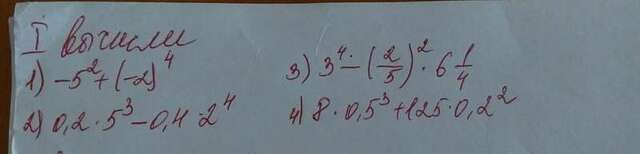 I вычисли
1) -5² + (-2)⁴
2) 0,2 · 5³ - 0,4 · 2⁴
3) 3⁴ - (2/5)² · 6 1/4
4) 8 · 0,5³ + 125 · 0,2²